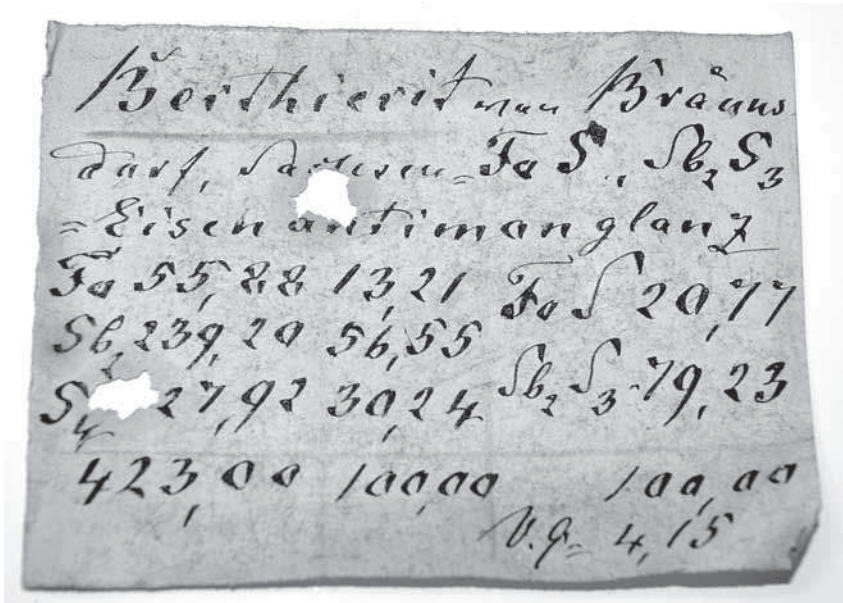 Berthierit von Bräuns
dorf, Sachsen = Fe S, Sb2 S3
= Eisenantimonglanz
Fe 55,88 13,21 Fe S 20,77
Sb2 239,20 56,55
S4 127,92 30,24 Sb2 S3 79,23
423,00 100,00 100,00
V.G = 4,15